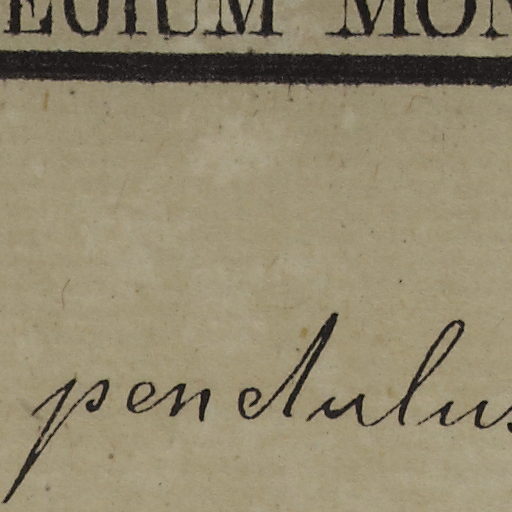 EGIUM MON
pendulus